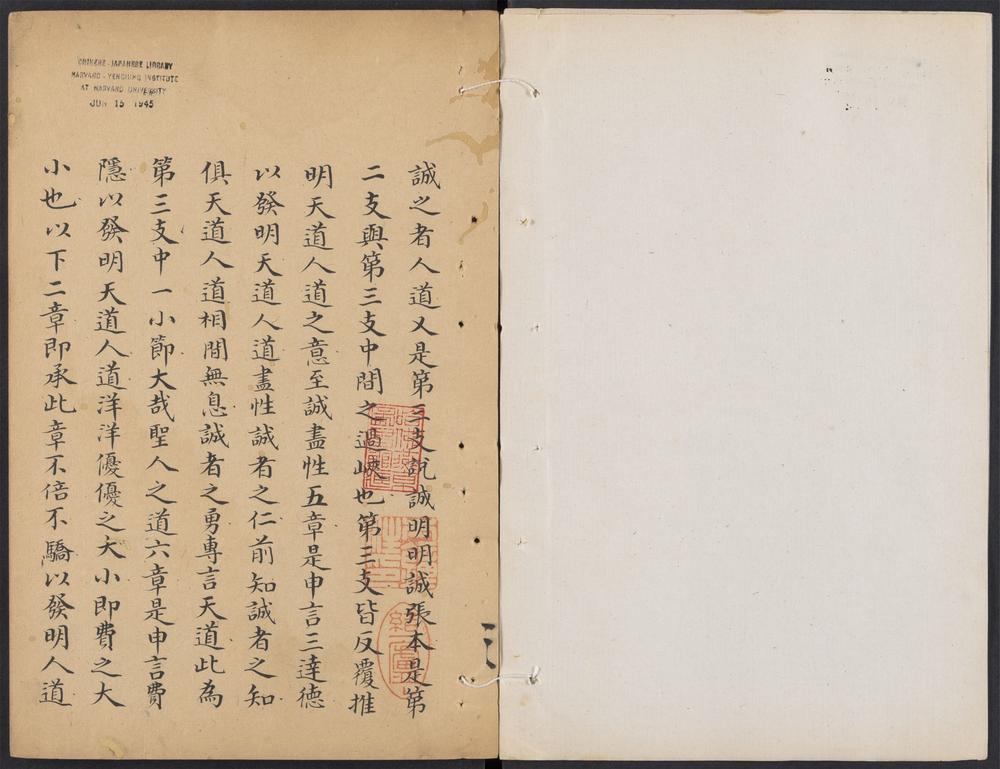 CHINESE-JAPANESE LIBRARY
HARVARD-YENCHING INSTITUTE
AT HARVARD UNIVERSITY
JUN 15 1945
誠之者人道又是第三支說誠明明誠張本是第
二支與第三支中間之過峽也第三支皆反覆推
明天道人道之意至誠盡性五章是申言三達德
以發明天道人道盡性誠者之仁前知誠者之知
俱天道人道相間無息誠者之勇專言天道此為
第三支中一小節大哉聖人之道六章是申言費
隱以發明天道人道洋洋優優之大小即費之大
小也以下二章即承此章不倍不驕以發明人道